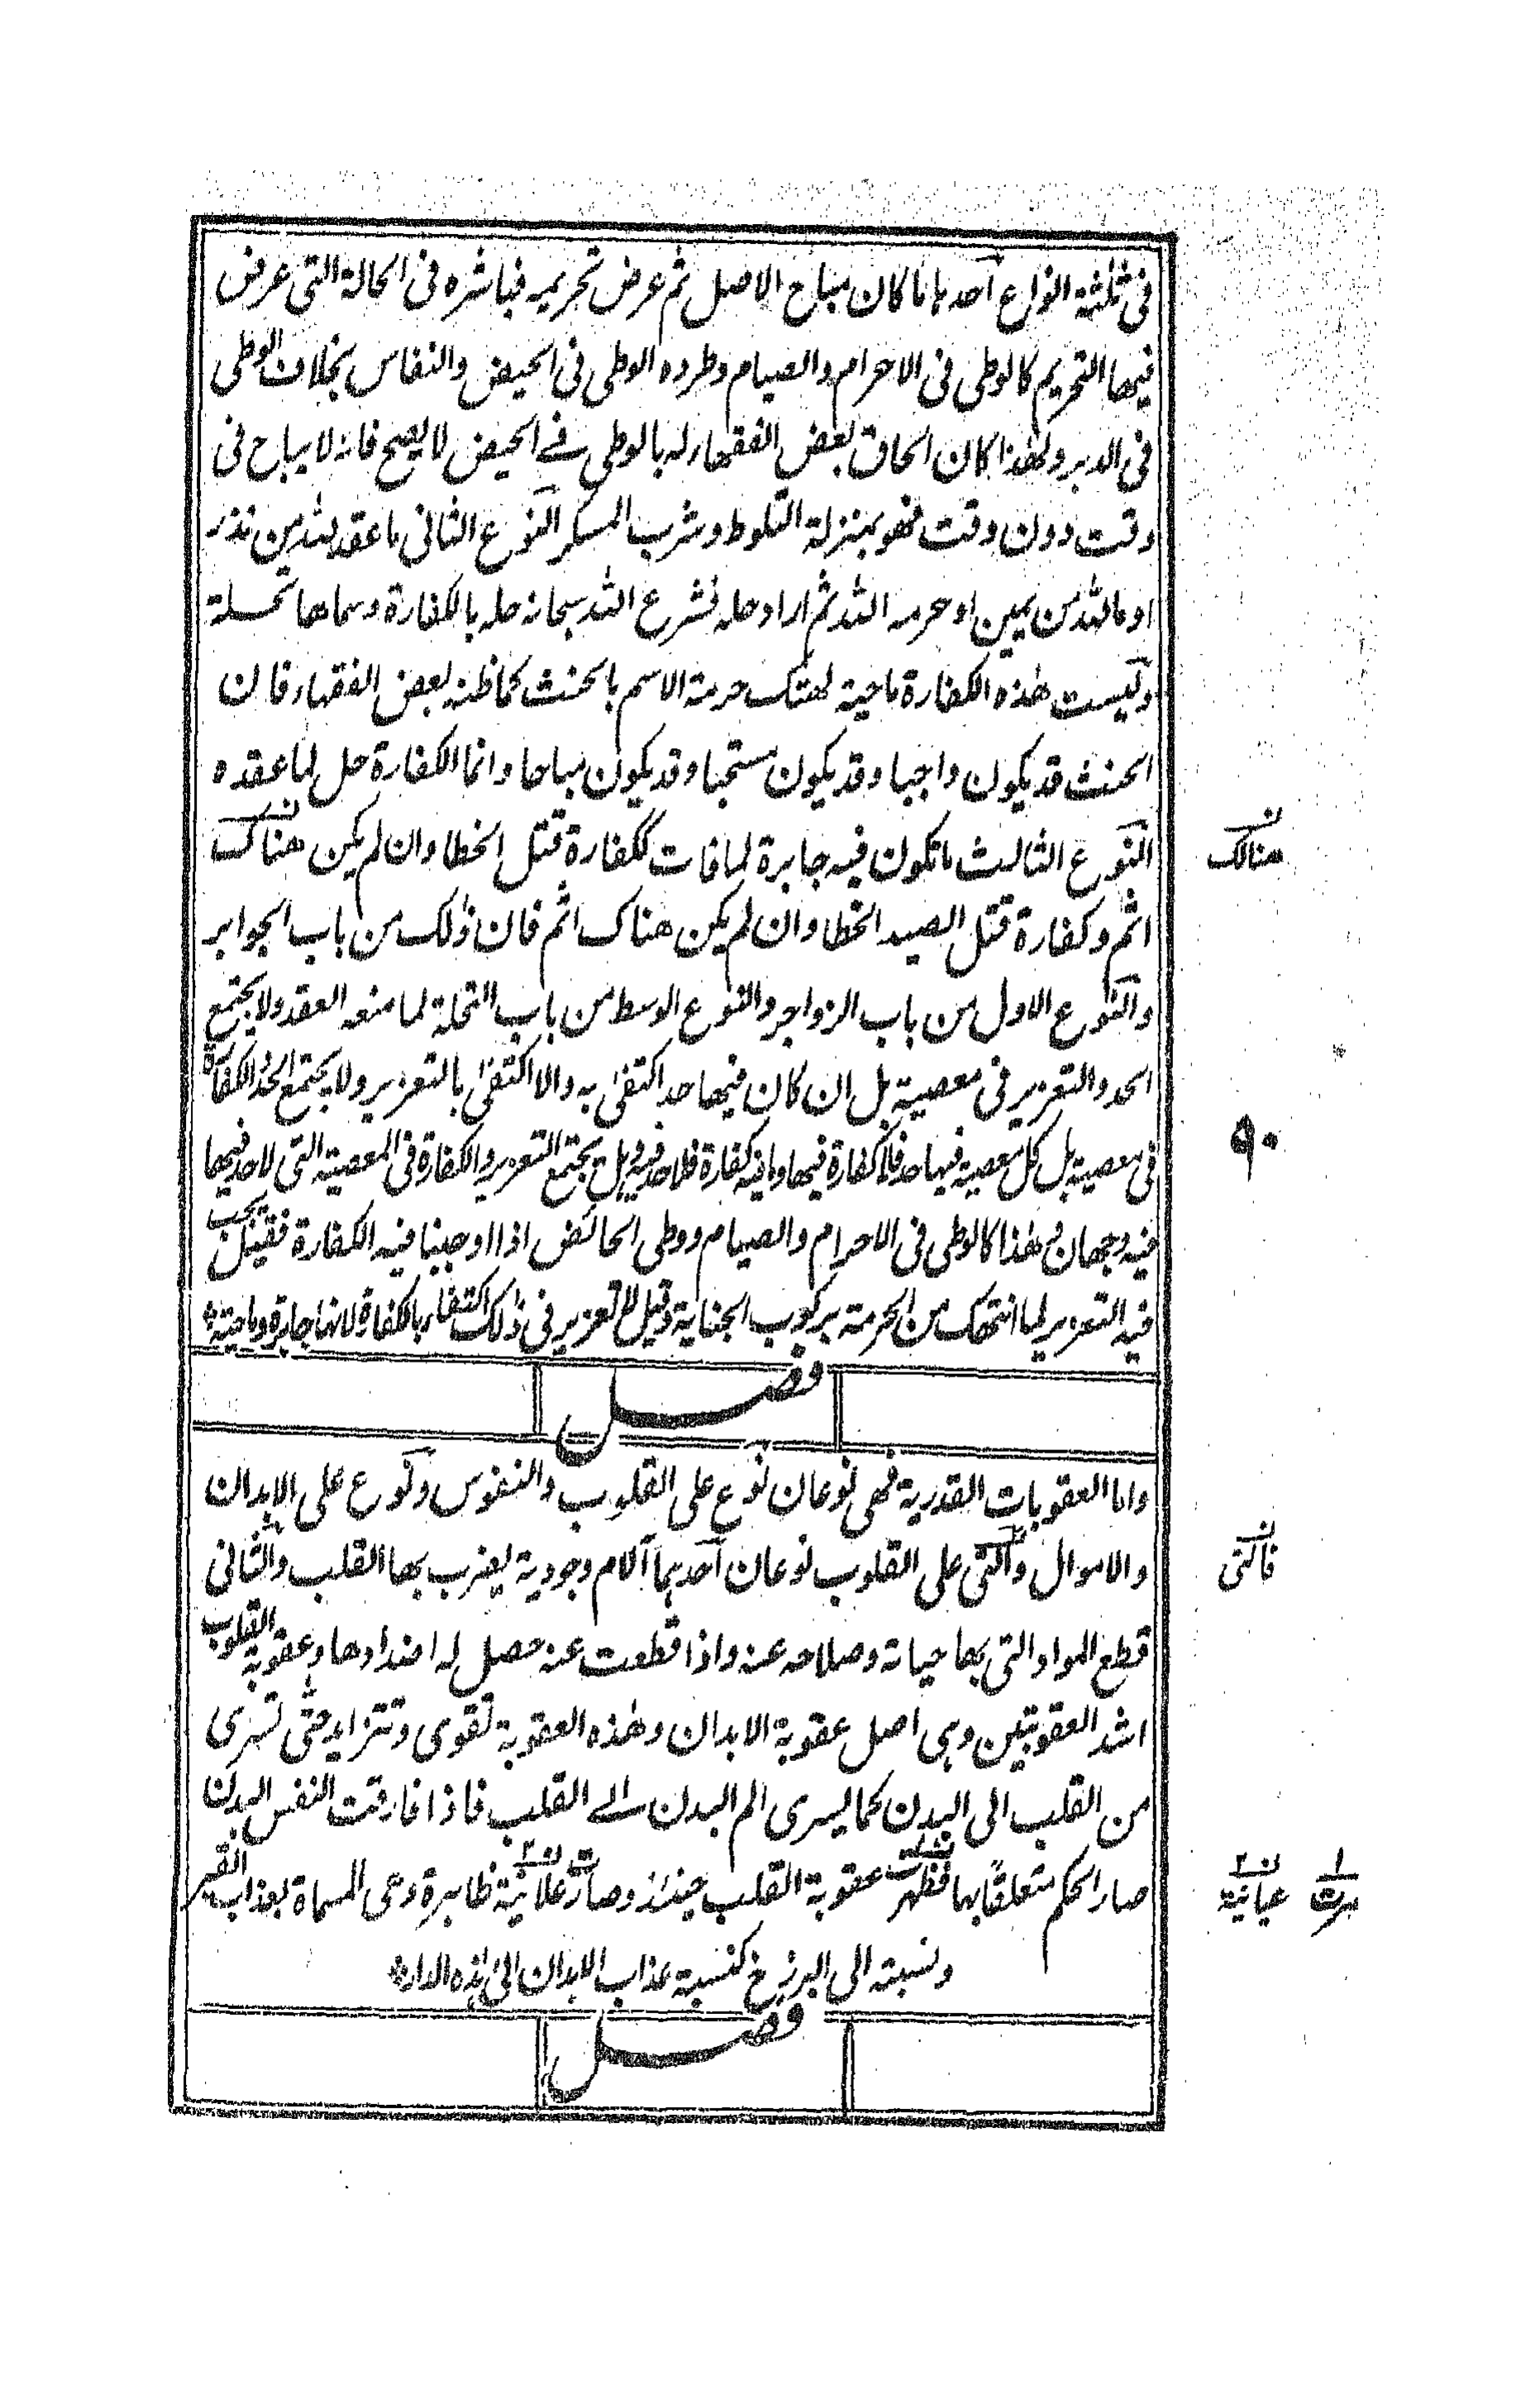 فى ثلثة انواع احدها ما كان مباح الاصل ثم عرض تحريمه فباشره فى الحالة التى عرض
فيها التحريم كالوطى فى الاحرام والصيام وطرده الوطى فى الحيض والنفاس بخلاف الوطى
فى الدبر ولهذا كان الحاق بعض الفقهاء له بالوطى فى الحيض لا يصح فانه لا يباح فى
وقت دون وقت فهو بمنزلة التلوط وشرب المسكر النوع الثانى ما عقد لله من نذر
او بالله من يمين او حرمه الله ثم اراد حله فشرع الله سبحانه حله بالكفارة وسماها تحلة
وليست هذه الكفارة ماحية لهتك حرمة الاسم بالحنث كما ظنه بعض الفقهاء فان
الحنث قد يكون واجبا وقد يكون مستحبا وقد يكون مباحا وانما الكفارة حل لما عقده
النوع الثالث ما تكون فيه جابرة لما فات ككفارة قتل الخطا وان لم يكن هناك
هنالك
اثم وكفارة قتل الصيد الخطا وان لم يكن هناك اثم فان ذلك من باب الجوابر
والنوع الاول من باب الزواجر والنوع الوسط من باب التحلة لما منعه العقد ولا يجتمع
الحد والتعزير فى معصية بل ان كان فيها حد اكتفى به والا اكتفى بالتعزير ولا يجتمع الحد والكفارة
فى معصية بل كل معصية فيها حد فلا كفارة فيها وما فيه كفارة فلا حد فيه وهل يجتمع التعزير والكفارة فى المعصية التى لا حد فيها
٩٠
فيه وجهان وهذا كالوطى فى الاحرام والصيام ووطى الحائض اذا اوجبنا فيه الكفارة فقيل يجب
فيه التعزير لما انتهك من الحرمة بركوب الجناية وقيل لا تعزير فى ذلك اكتفاء بالكفارة لانها جابرة وماحية
فصل
واما العقوبات القدرية فهى نوعان نوع على القلوب والنفوس ونوع على الابدان
والاموال والتى على القلوب نوعان احدهما آلام وجودية يضرب بها القلب والثانى
فالتى
قطع المواد التى بها حياته وصلاحه عنه واذا قطعت عنه حصل له اضدادها وعقوبة القلوب
اشد العقوبتين وهى اصل عقوبة الابدان وهذه العقوبة تقوى وتتزايد حتى تسرى
من القلب الى البدن كما يسرى الم البدن الى القلب فاذا فارقت النفس البدن
صار الحكم متعلقًا بها فظهرت عقوبة القلب حينئذ وصارت علانية ظاهرة وهى المسماة بعذاب القبر
ن٢ عيانية
ونسبته الى البرزخ كنسبة عذاب الابدان الى هذه الدار
فصل